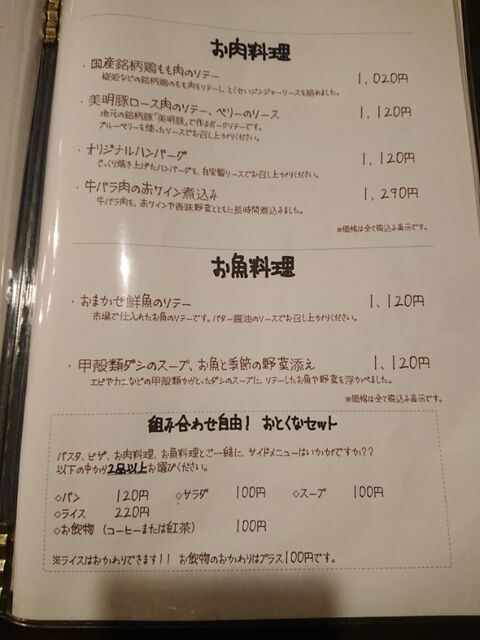 お肉料理
・国産銘柄鶏もも肉のソテー 1,020円
総姫などの銘柄鶏のもも肉をソテーし、とくせいジンジャーソースを絡めました。
・美明豚ロース肉のソテー、ベリーのソース 1,120円
地元の銘柄豚「美明豚」で作るポークソテーです。
ブルーベリーを使ったソースでお召し上がりください。
・オリジナルハンバーグ 1,120円
じっくり焼き上げたハンバーグを、自家製ソースでお召し上がりください。
・牛バラ肉の赤ワイン煮込み 1,290円
牛バラ肉を、赤ワインや香味野菜とともに長時間煮込みました。
※価格は全て税込み表示です。
お魚料理
・おまかせ鮮魚のソテー 1,120円
市場で仕入れたお魚のソテーです。バター醤油のソースでお召し上がりください。
・甲殻類ダシのスープ、お魚と季節の野菜添え 1,120円
エビやカニなどの甲殻類からとったダシのスープに、ソテーしたお魚や野菜を浮かべました。
※価格は全て税込み表示です。
組み合わせ自由! おとくなセット
パスタ、ピザ、お肉料理、お魚料理とご一緒に、サイドメニューはいかがですか??
以下の中から2品以上お選びください。
◇パン 120円 ◇サラダ 100円 ◇スープ 100円
◇ライス 220円
◇お飲物 (コーヒーまたは紅茶) 100円
※ライスはおかわりできます!! お飲物のおかわりはプラス100円です。